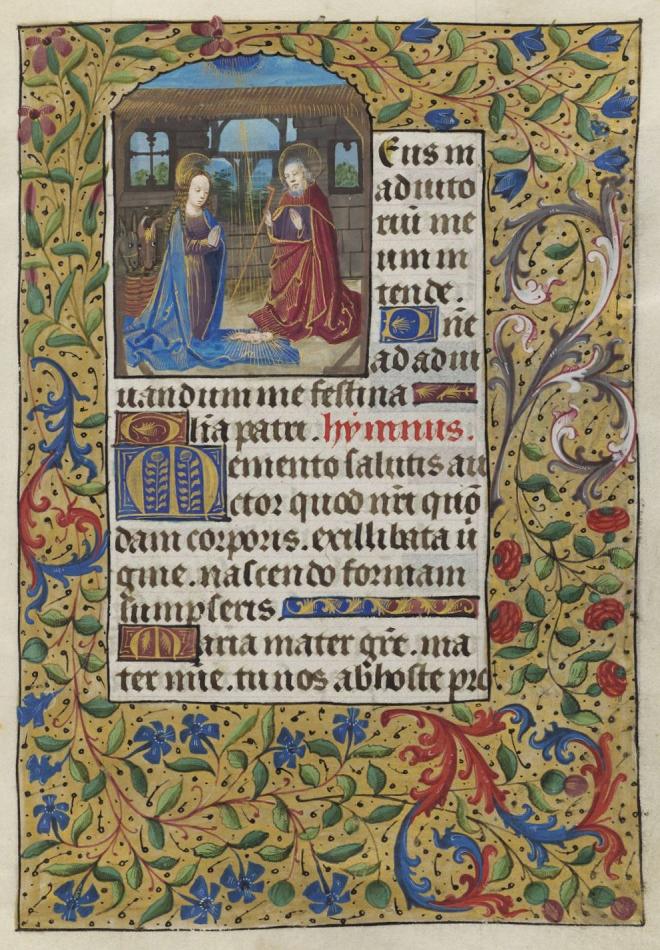 Eus in
adiuto
riū me
um in
tende.
Dn̄e
ad adiu
uandum me festina
Glia patri. hymnus.
Memento salutis au
ctor quod nr̄i quō
dam corporis. ex illibata ū
gine. nascendo formam
sumpseris.
Maria mater gr̄e. ma
ter mīe. tu nos ab hoste pro